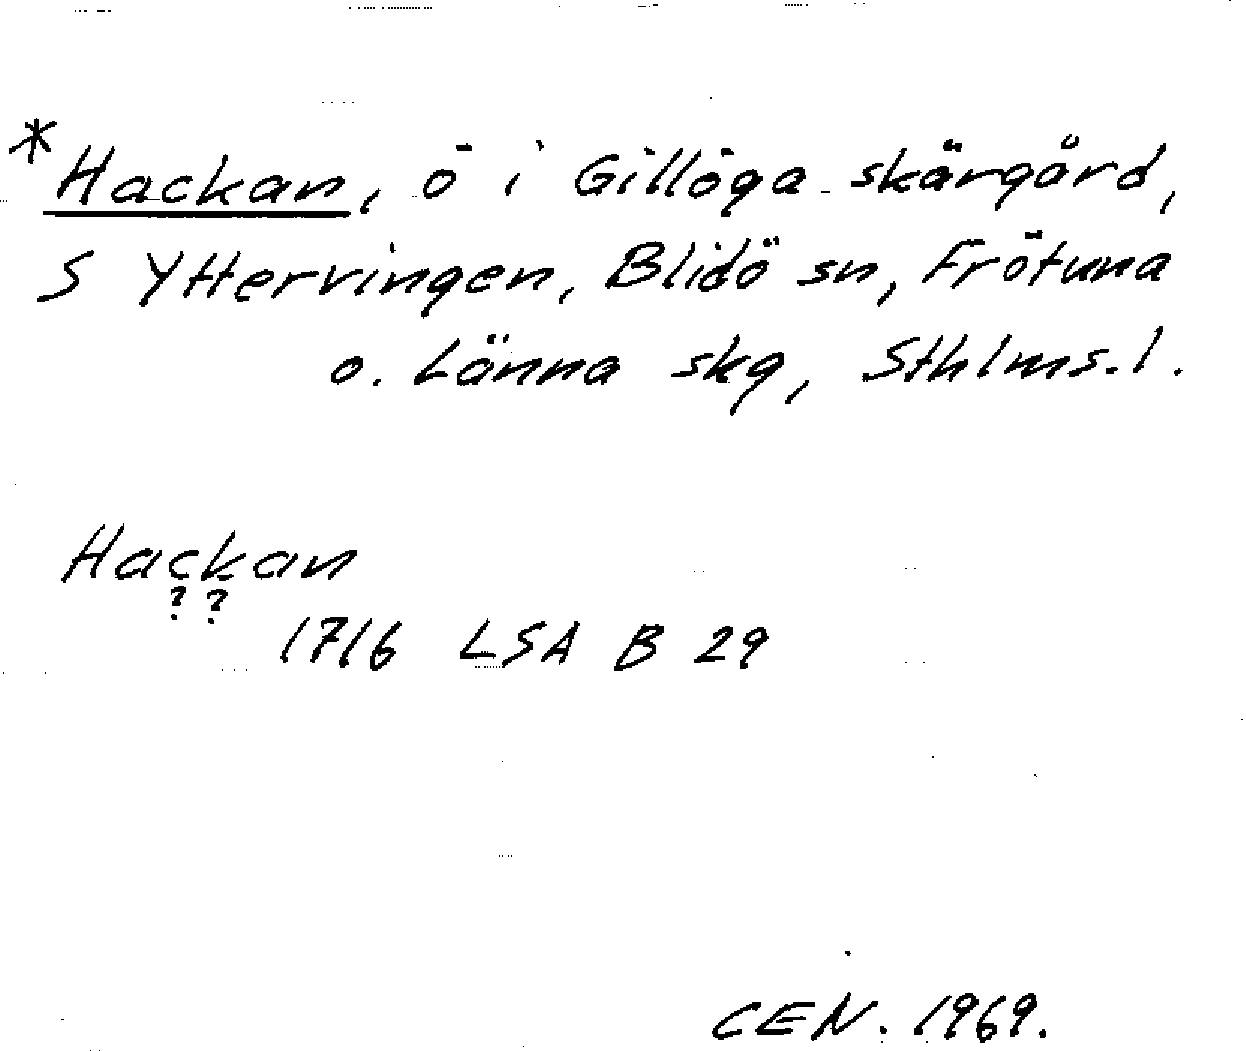 *Hackan, ö i Gillöga skärgård,
S Yttervingen, Blidö sn, Frötuna
o. Länna skg, Sthlms. l.
Hackan
? ?
1716 LSA B 29
CEN. 1969.